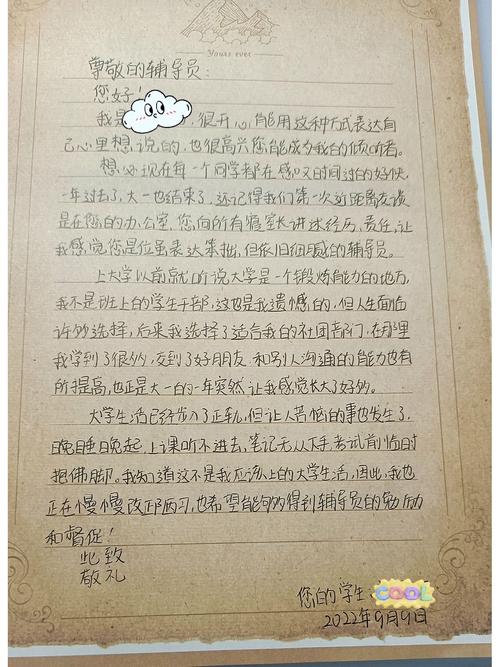 Yours ever
尊敬的辅导员:
您好!
我是 ,很开心能用这种方式表达自
己心里想说的,也很高兴您能成为我的倾听者。
想必现在每一个同学都在感叹时间过的好快,
一年过去了,大一也结束了,还记得我们第一次近距离交谈
是在您的办公室,您向所有寝室长讲述经历、责任,让
我感觉您是位虽表达笨拙,但依旧细腻的辅导员。
上大学以前就听说大学是一个锻炼能力的地方,
我不是班上的学生干部,这也是我遗憾的,但人生面临
许多选择,后来我选择了适合我的社团部门,在那里
我学到了很多,交到了好朋友,和别人沟通的能力也有
所提高,也正是大一的一年突然让我感觉长大了好多。
大学生活已经步入了正轨,但让人苦恼的事也发生了,
晚睡晚起,上课听不进去,笔记无从下手,考试前临时
抱佛脚,我知道这不是我应该上的大学生活,因此,我也
正在慢慢改正陋习,也希望能够多得到辅导员的勉励
和督促!
此致
敬礼
您的学生:COOL
2022年9月9日